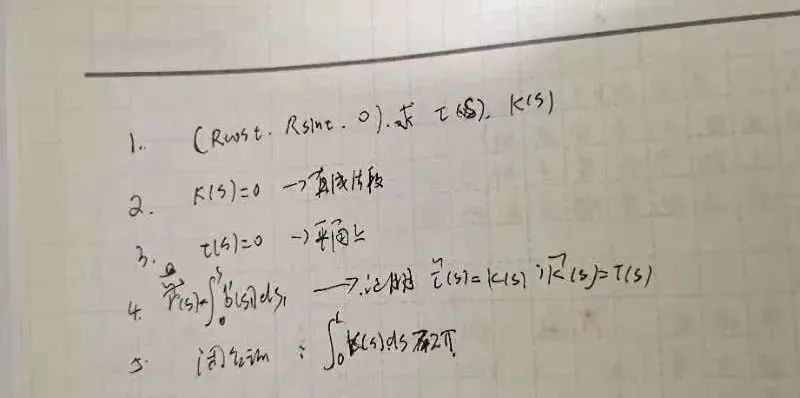 1. (Rcost. Rsint. 0). 求 τ(s). k(s)
2. k(s)=0 →直线片段
3. τ(s)=0 →平面上
4. r̃(s)=∫₀ˢ b(s₁)ds₁ → 证明 τ̃(s)=k(s) ; k̃(s)=τ(s)
5. 闭 : ∫₀ᴸ k(s)ds 2π